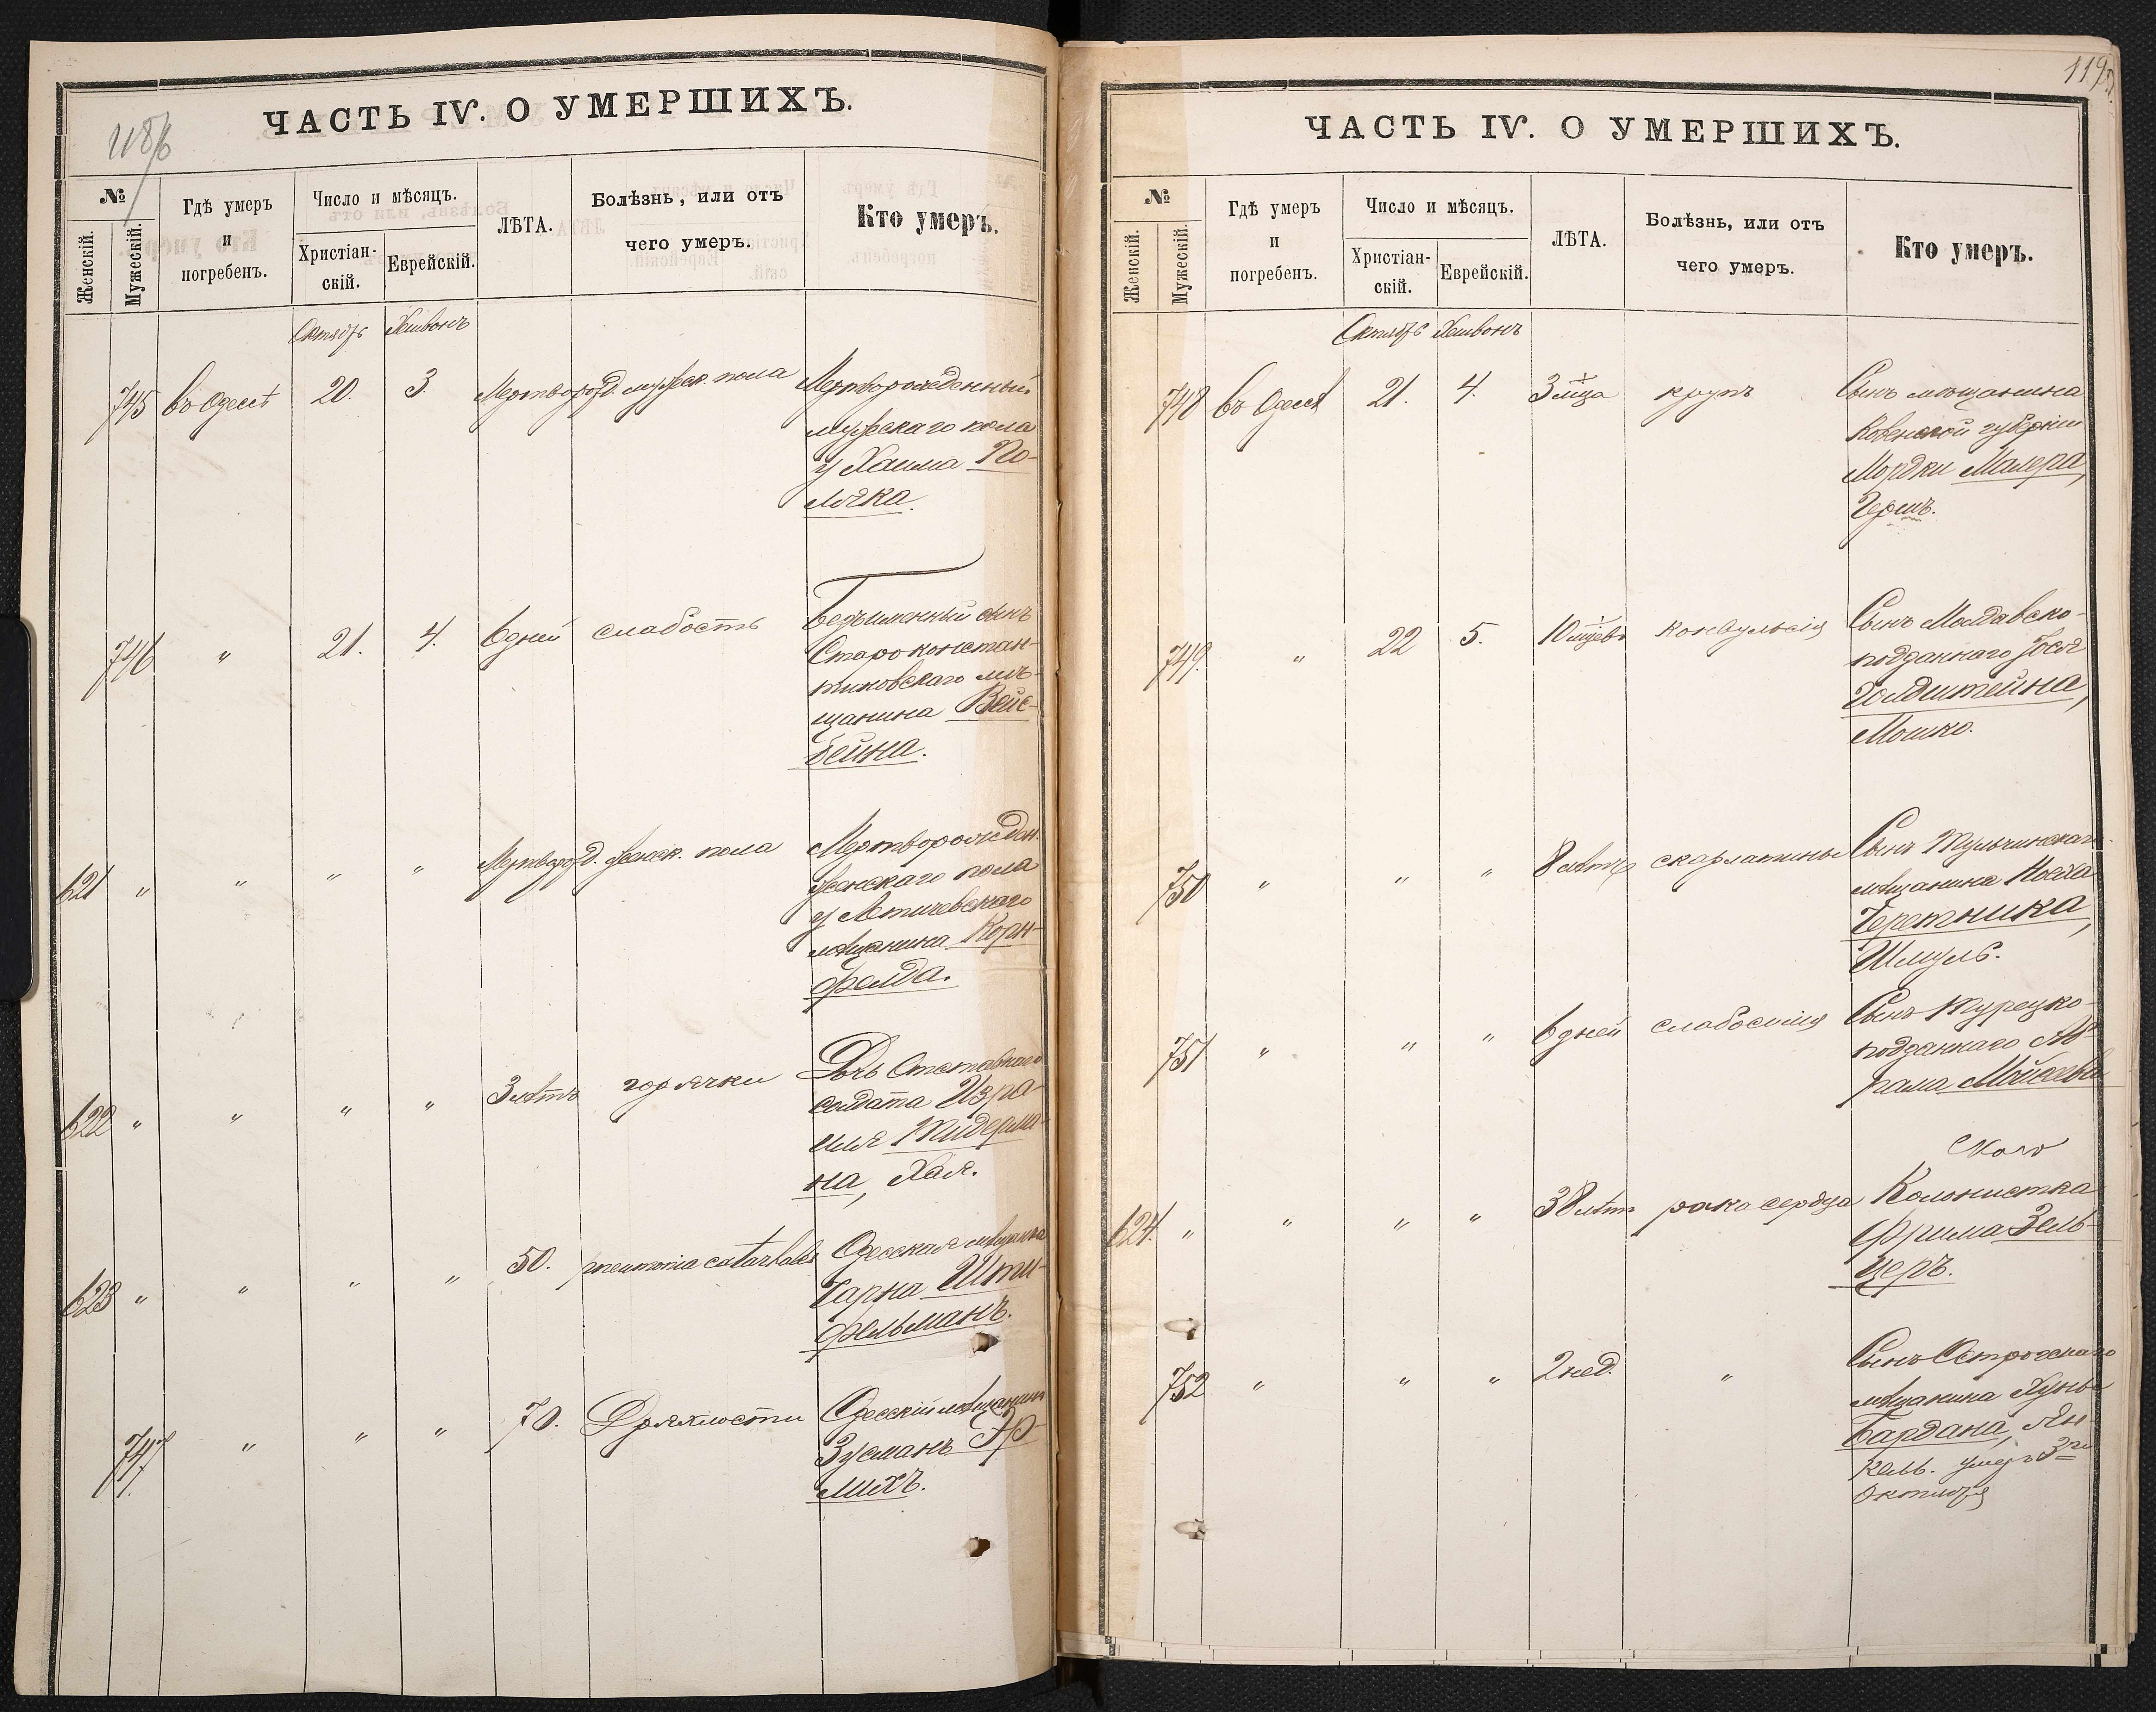 118/б
ЧАСТЬ IV. О УМЕРШИХЪ.
№
Женскій.
Мужескій.
Гдѣ умеръ
и
погребенъ.
Число и мѣсяцъ.
Христіан-
скій.
Еврейскій.
ЛѢТА.
Болѣзнь, или отъ
чего умеръ.
Кто умеръ.
Октябрь Хешвонъ
745 въ Одессѣ 20. 3. Мертворожд. мужеск. пола Мертворожденный
мужескаго пола
у Хаима По-
лячка.
746 " 21. 4. 6 дней слабость Безъименный сынъ
Староконстан-
тиновскаго мѣ-
щанина Вейс-
бейна.
621 " " " " Мертворожд. женск. пола Мертворожден.
женскаго пола
у Летичевскаго
мѣщанина Корн-
фелда.
622 " " " " 3 лѣтъ горячки Дочь Отставнаго
солдата Изра-
иля Жидерма-
на, Хая.
623 " " " " 50. pneumonia catarhalis Одесская мѣщанка
Чарна Шти-
фельманъ.
747. " " " 70. Дряхлости Одесскій мѣщанинъ
Зусманъ Ар-
лихъ.
119
ЧАСТЬ IV. О УМЕРШИХЪ.
№
Женскій.
Мужескій.
Гдѣ умеръ
и
погребенъ.
Число и мѣсяцъ.
Христіан-
скій.
Еврейскій.
ЛѢТА.
Болѣзнь, или отъ
чего умеръ.
Кто умеръ.
Октябрь Хешвонъ
748 въ Одессѣ 21. 4. 3 мѣца крупъ Сынъ мѣщанина
Ковенской губерніи
Мордки Малера,
Гершъ.
749. " 22 5. 10 мцевъ конвульсія Сынъ Молдавско-
подданнаго Іося
Голдштейна,
Мошко.
750 " " " 8 лѣтъ скарлатины Сынъ Тульчинскаго
мѣщанина Носха
Черетника,
Шмуль.
751 " " " 6 дней слабосилія Сынъ Турецко-
подданнаго Ав-
рама Мойсеев-
ского
624. " " " " 38 лѣтъ рака сердца Колонистка
Фрима Зель-
церъ.
752 " " " 2 нед. " Сынъ Острогскаго
мѣщанина Хуны
Бардана, Ян-
кель. умеръ 3го
Октября